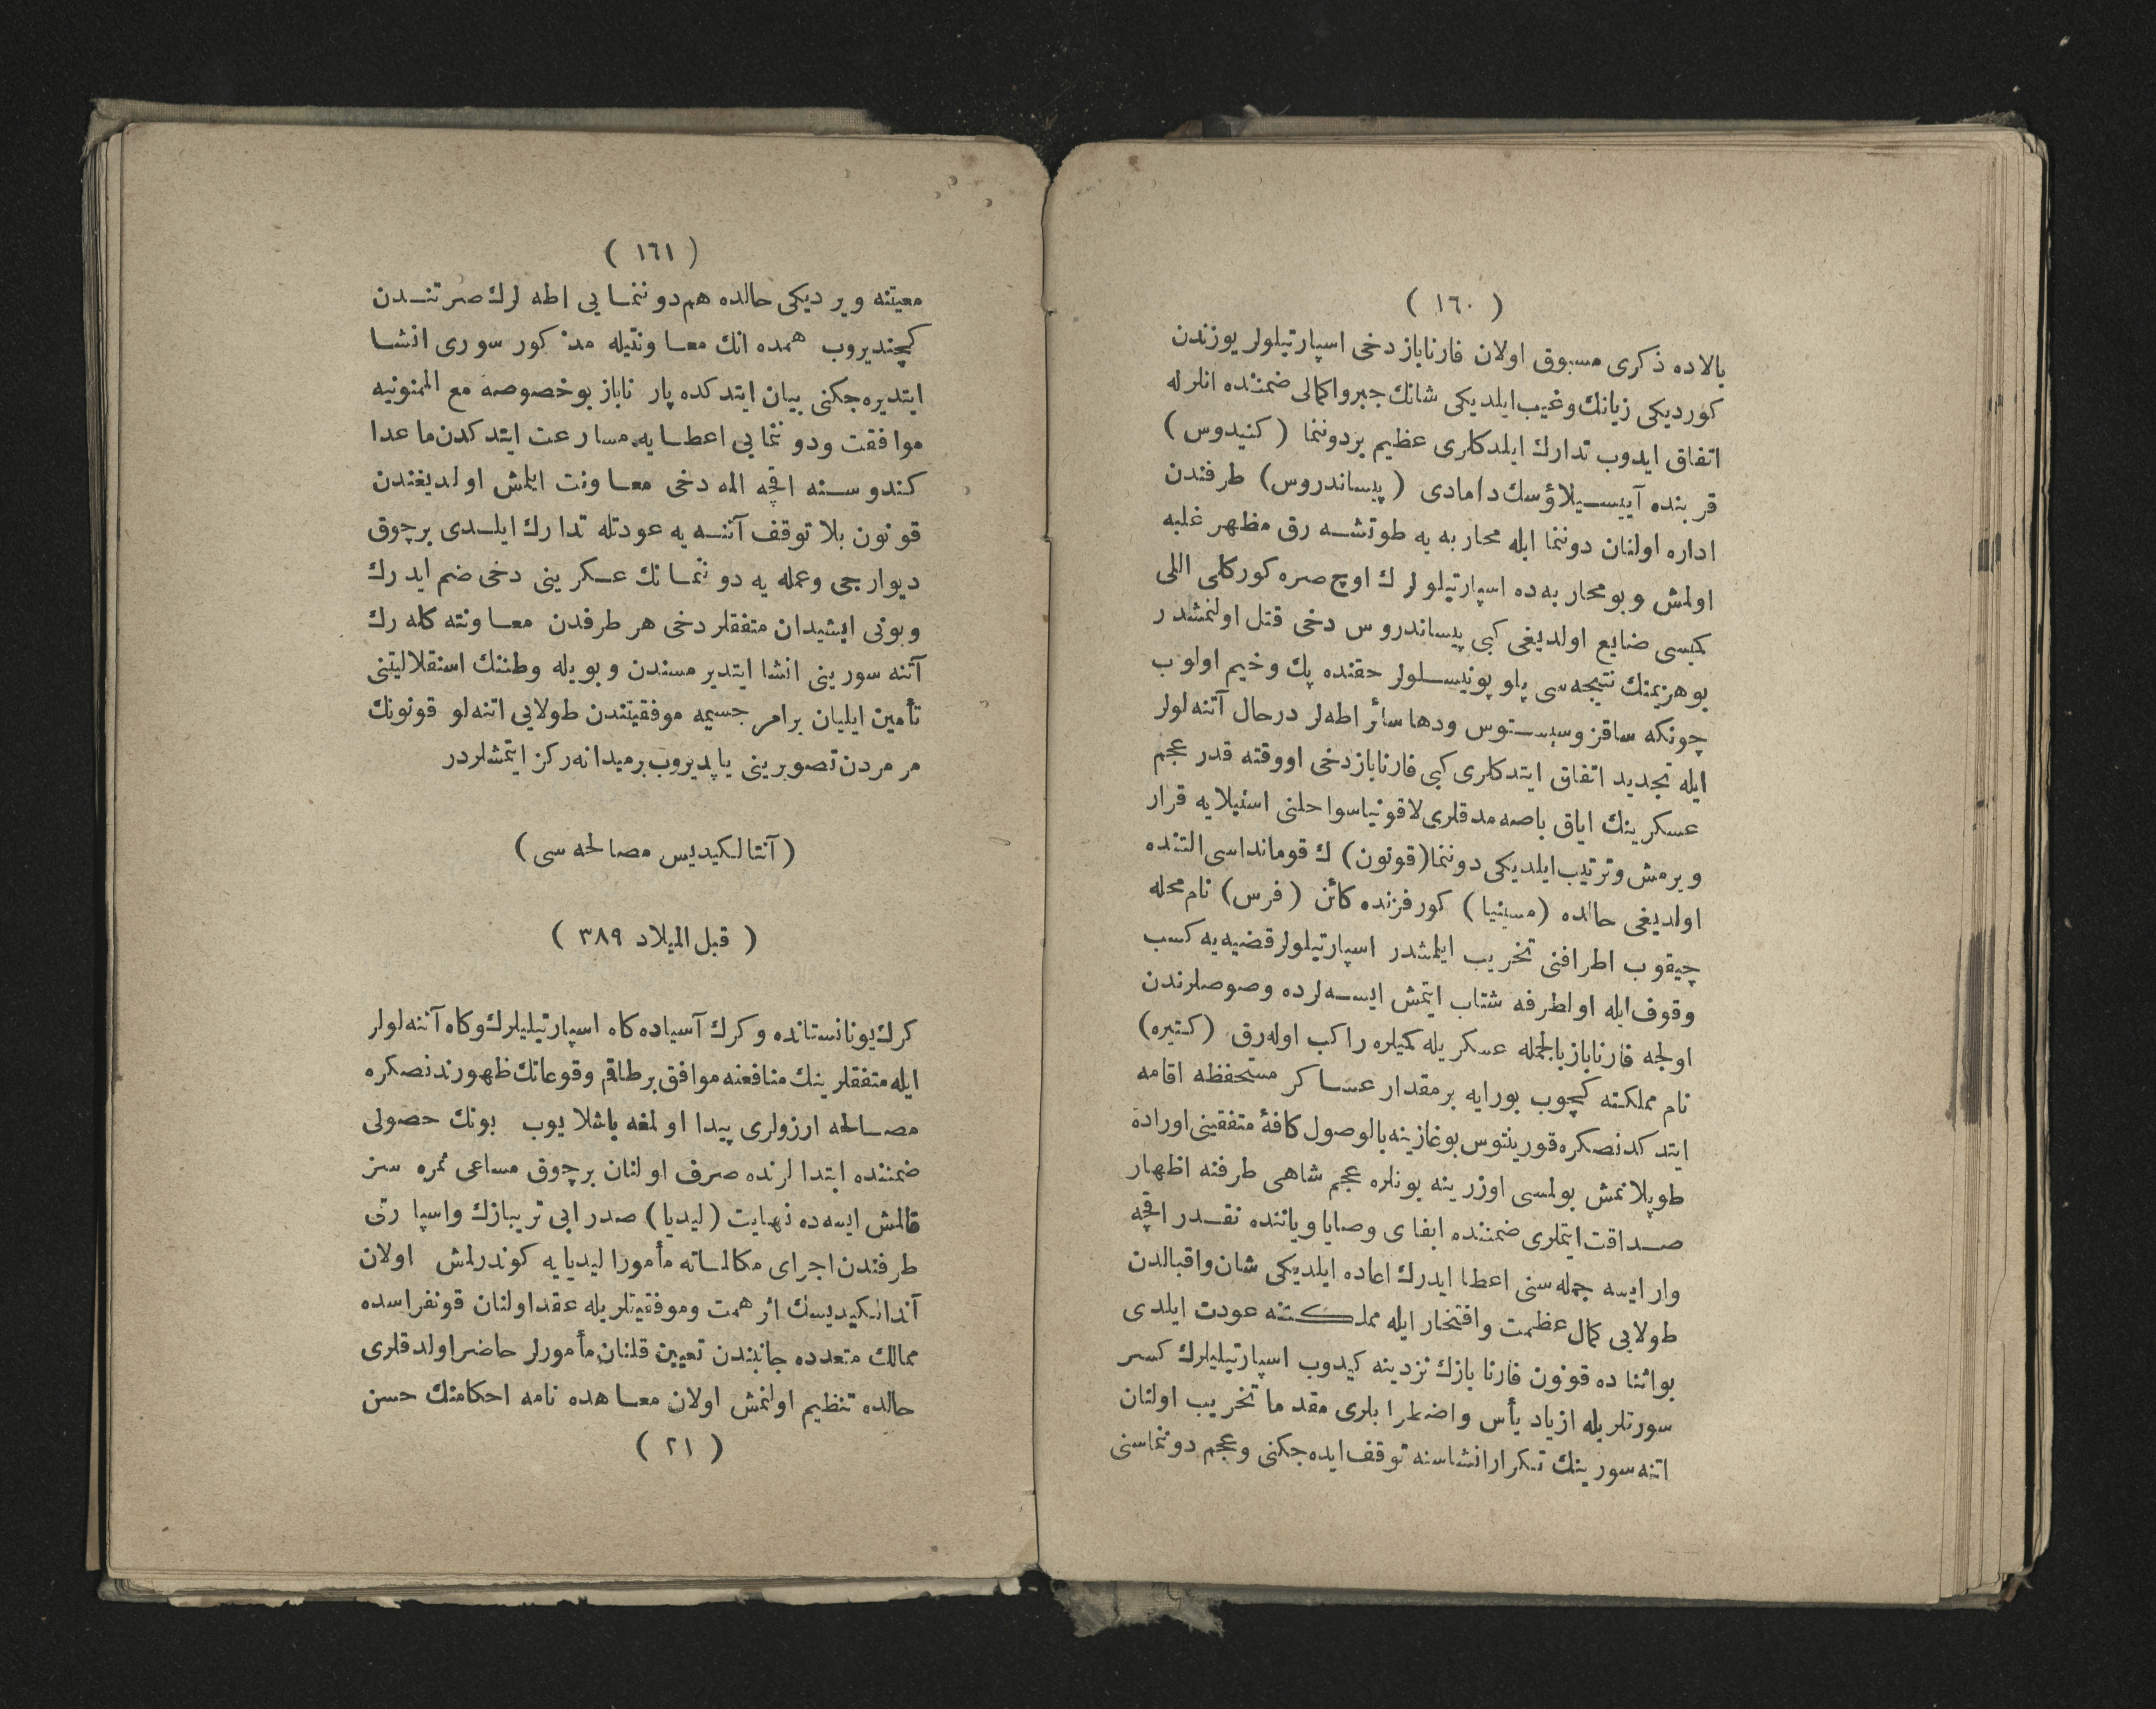 ( ١٦٠ )
بالاده ذكرى مسبوق اولان فارناباز دخى اسپارتيلولر يوزندن
كورديكى زيانك وغيب ايلديكى شانك جبر واكمالى ضمننده انلر له
اتفاق ايدوب تدارك ايلدكلرى عظيم بردوننما ( كنيدوس )
قربنده آييسيلاؤسك دامادى ( پيساندروس ) طرفندن
اداره اولنان دوننما ايله محاربه يه طوتشه رق مظهر غلبه
اولمش و بومحاربه ده اسپارتيلولرك اوچ صره كوركلى اللى
كميسى ضايع اولديغى كبى پيساندروس دخى قتل اولنمشدر
بوهزيمتك نتيجه سى پلوپونيسلولر حقنده پك وخيم اولوب
چونكه ساقز وسيستوس ودها سائر اطه لر درحال آتنه لولر
ايله تجديد اتفاق ايتدكلرى كبى فارناباز دخى اووقته قدر عجم
عسكرينك اياق باصه مدقلرى لاقونياسواحلنى استيلايه قرار
ويرمش وترتيب ايلديكى دوننما (قونون) ك قومانداسى التنده
اولديغى حالده (مسينيا) كورفزنده كائن (فرس) نام محله
چيقوب اطرافنى تخريب ايلمشدر اسپارتيلولر قضيه يه كسب
وقوف ايله اولطرفه شتاب ايتمش ايسه لرده وصوصلرندن
اولجه فارناباز بالجمله عسكريله كميلره راكب اوله رق (كتيره)
نام مملكته كچوب بورايه برمقدار عساكر مستحفظه اقامه
ايتدكدنصكره قورينتوس بوغازينه بالوصول كافۀ متفقينى اوراده
طوپلانمش بولسى اوزرينه بونلره عجم شاهى طرفنه اظهار
صداقت ايتملرى ضمننده ايفاى وصايا و ياننده نقدر اقچه
وار ايسه جمله سنى اعطا ايدرك اعاده ايلديكى شان واقبالدن
طولايى كمال عظمت وافتخار ايله مملكتنه عودت ايلدى
بواثناده قونون فارنابازك نزدينه كيدوب اسپارتيليلرك كسر
سورتلريله ازياد يأس واضطرابلرى مقدما تخريب اولنان
اتنه سورينك تكرار انشاسنه توقف ايده جكنى وعجم دوننماسنى
( ١٦١ )
معيتنه ويرديكى حالده هم دوننمايى اطه لرك صرتندن
كچنديروب همده انك معاونتيله مذكور سورى انشا
ايتديره جكنى بيان ايتدكده پارناباز بوخصوصه مع الممنونيه
موافقت ودوننمايى اعطايه مسارعت ايتدكدن ماعدا
كندوسنه اقچه الله دخى معاونت ايلمش اولديغندن
قونون بلا توقف آتنه يه عودتله تدارك ايلدى برچوق
ديوارجى وعمله يه دوننمانك عسكرينى دخى ضم ايدرك
وبونى ايشيدان متفقلر دخى هر طرفدن معاونته كله رك
آتنه سورينى انشا ايتديرمسندن وبويله وطننك استقلاليتنى
تأمين ايليان برامر جسيمه موفقيتندن طولايى اتنه لو قونونك
مرمردن تصويرينى ياپديروب برميدانه ركز ايتمشلردر
(آنتالكيديس مصالحه سى)
( قبل الميلاد ٣٨٩ )
كرك يونانستانده وكرك آسياده كاه اسپارتيليلرك وكاه آتنه لولر
ايله متفقلرينك منافعنه موافق برطاقم وقوعاتك ظهورندنصكره
مصالحه ارزولرى پيدا اولمغه باشلايوب بونك حصولى
ضمننده ابتدالرنده صرف اولنان برچوق مساعى ثمره سز
قالمش ايسه ده نهايت (ليديا) صدرابى تريبازك واسپارتى
طرفندن اجراى مكالماته مأمورا ليديايه كوندرلمش اولان
آندالكيديسك اثر همت وموفقيتلريله عقد اولنان قونفراسده
ممالك متعدده جانبندن تعيين قلنان مأمورلر حاضر اولدقلرى
حالده تنظيم اولنمش اولان معاهده نامه احكامنك حسن
( ٢١ )